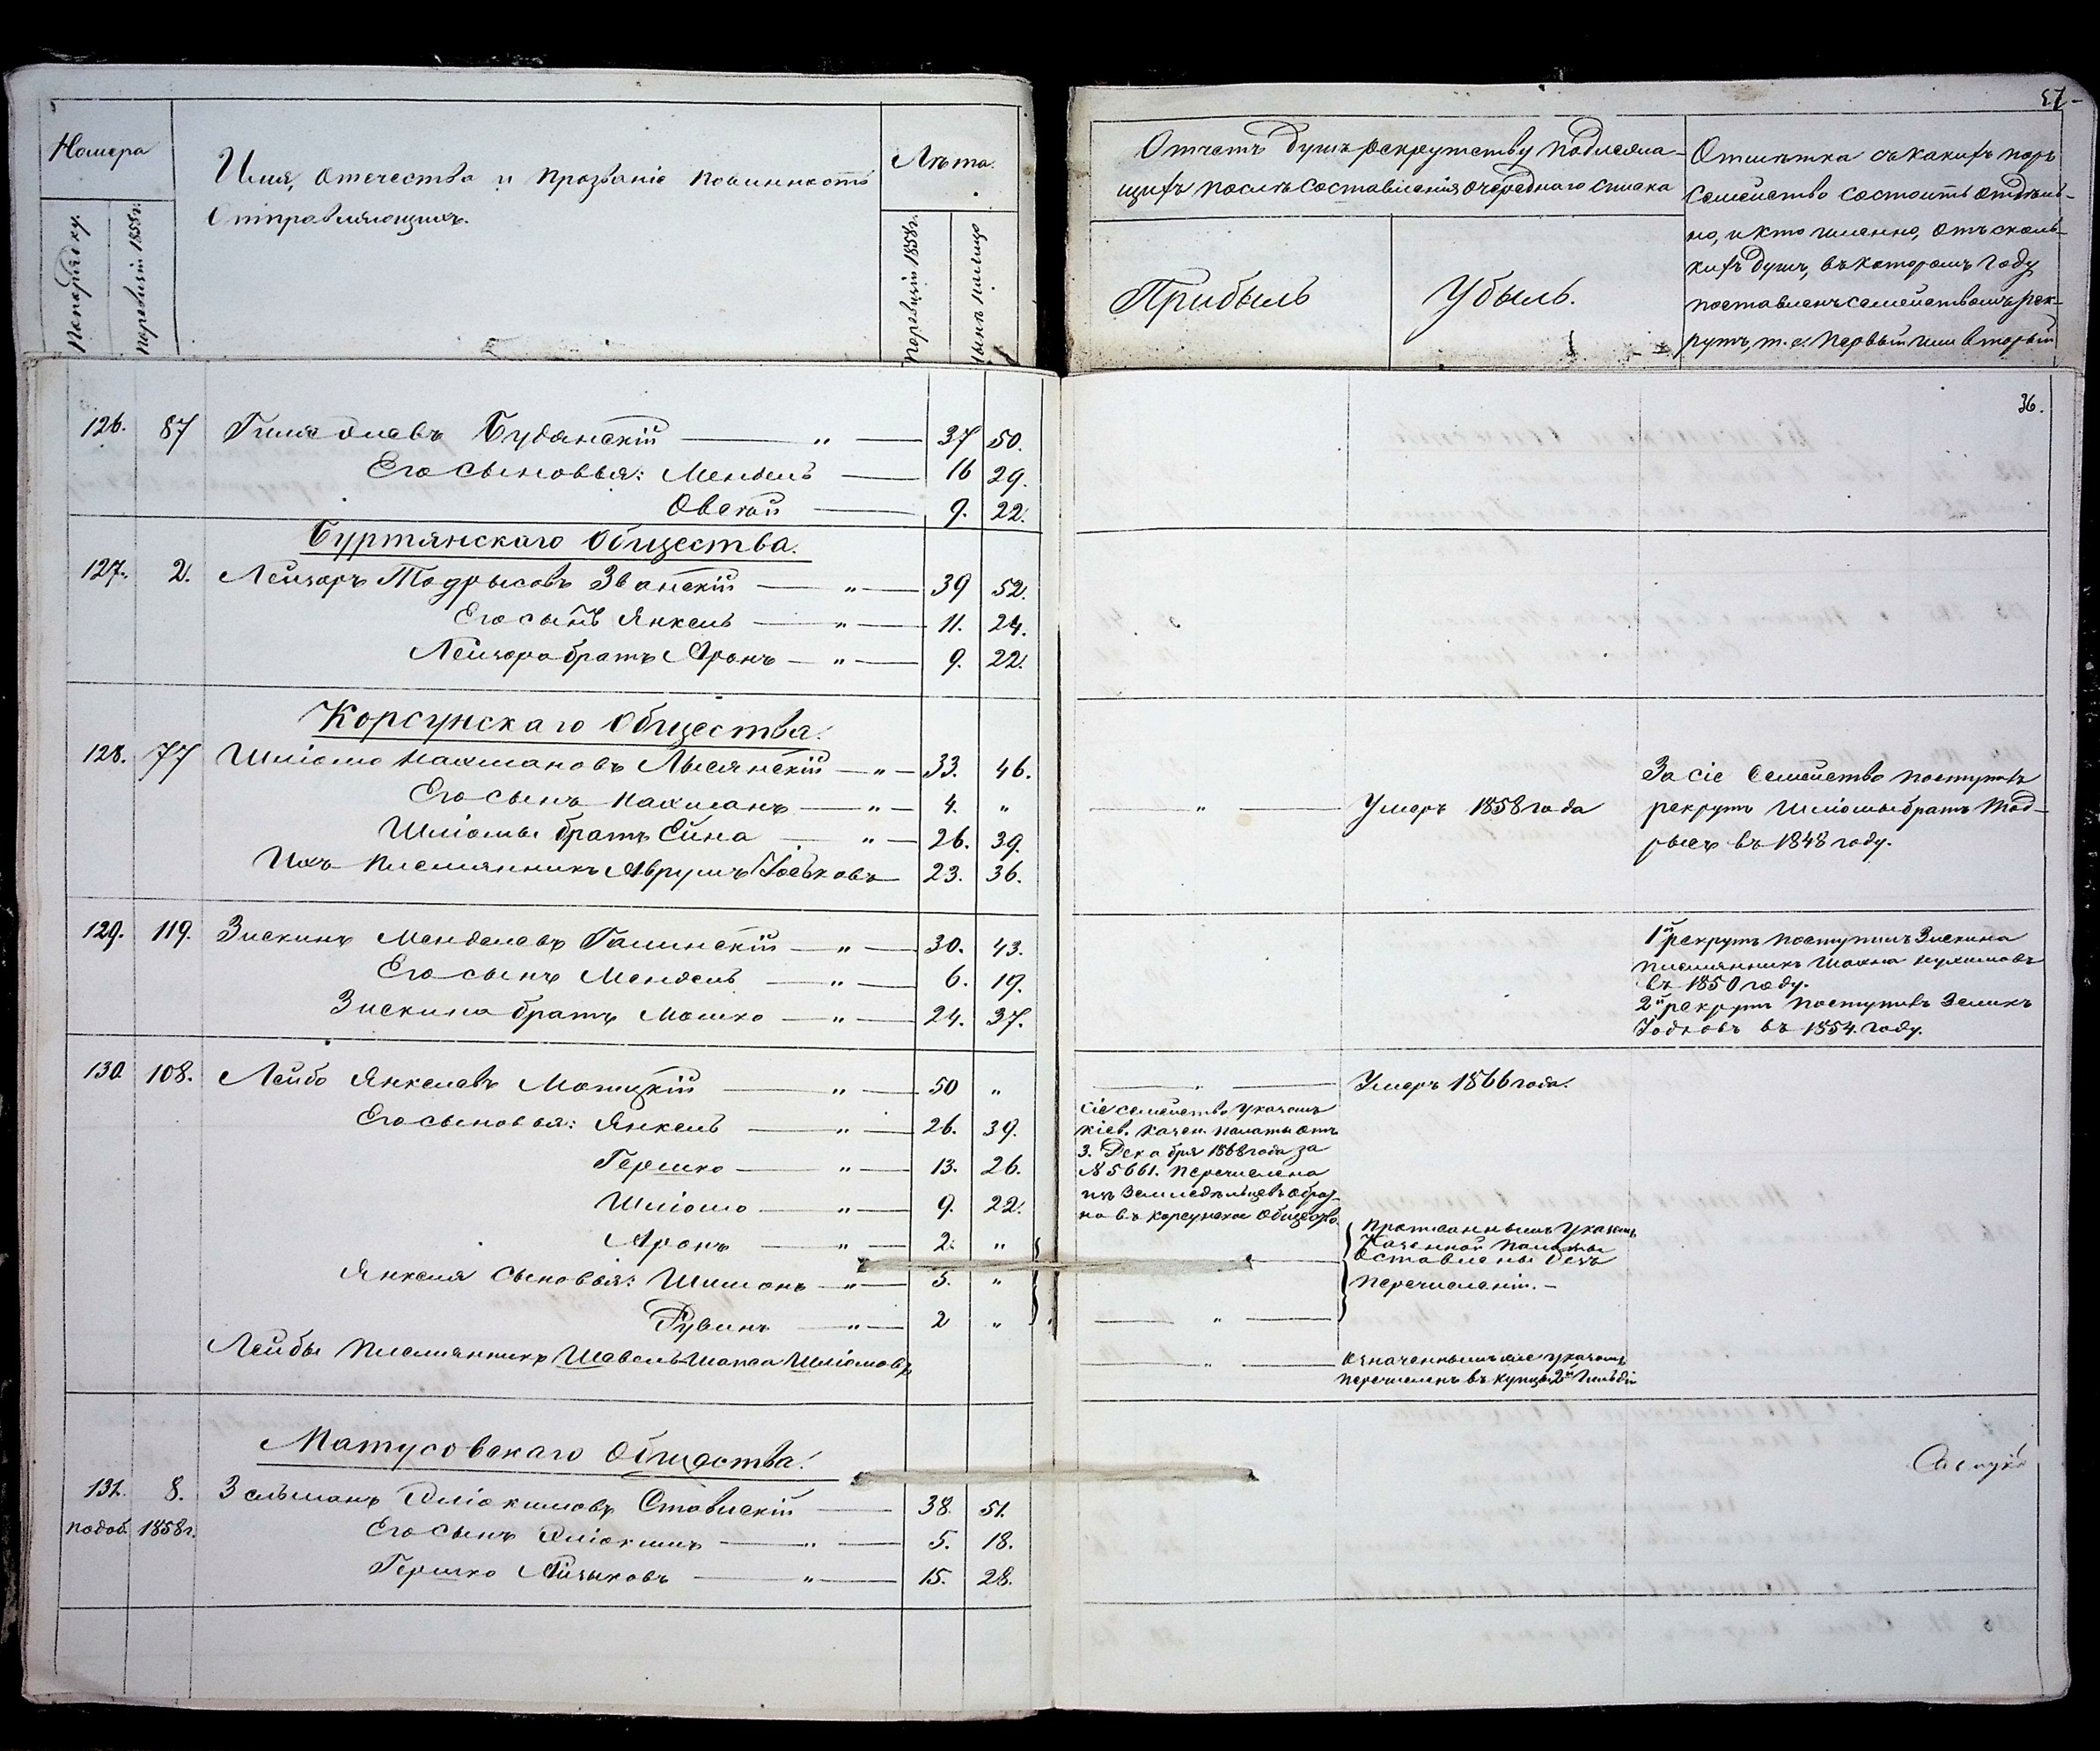 57
Номера
Имя, отечество и прозваніе повинность
отправляющихъ.
Лѣта.
По порядку.
По ревизіи 1858 г.
По ревизіи 1858 г.
Отчетъ душъ рекрутству подлежа-
щихъ послѣ составленія очереднаго списка
Прибыль
Убыль.
Отмѣтка съ какихъ поръ
семейство состоитъ отдѣль-
но, и кто именно, отъ сколь-
кихъ душъ, въ которомъ году
поставленъ семействомъ рек-
рутъ, т. е. первый или вторый
36.
126. 87 Гилелевъ Будянскій — " — 37 50.
Его сыновья: Мендель — 16 29.
Овсей — 9. 22.
Буртянскаго Общества.
127. 2. Лейзоръ Тодрысовъ Званскій — " — 39 52.
Его сынъ Янкель — " — 11. 24.
Лейзора братъ Аронъ — " — 9. 22.
Корсунскаго Общества.
128. 77 Шліомо Нахмановъ Лысянскій — " — 33. 46.
Его сынъ Нахманъ — " — 4. " — " — Умеръ 1858 года
Шліомы братъ Сина — " — 26. 39.
Ихъ племянникъ Аврумъ Іоськовъ — 23. 36.
За сіе семейство поступилъ
рекрутъ Шліомы братъ Тод-
рысъ въ 1848 году.
129. 119. Зискинъ Менделевъ Галинскій — " — 30. 43.
Его сынъ Мендель — " — 6. 19.
Зискина братъ Мошко — " — 24. 37.
1й рекрутъ поступилъ Зискина
племянникъ Шахна Нухимовъ
въ 1850 году.
2й рекрутъ поступилъ Зеликъ
въ 1854. году.
130 108. Лейбо Янкелевъ Мотицкій — " — 50 " — " — Умеръ 1866 года.
Его сыновья: Янкель — " — 26. 39.
Гершко — " — 13. 26.
Шліомо — " — 9. 22.
Аронъ — " — 2. "
Янкеля сыновья: Шимонъ — " — 5. "
Рувинъ — " — 2 " — " —
Лейбы племянникъ Шавель-Шапса Шліомовъ — " —
Сіе семейство указомъ
Кіев. Казен. палаты отъ
3. Декабря 1868 года за
№ 5661. перечислена
изъ Земледѣльцевъ обрат-
но въ Корсунское Общество
Прописаннымъ указомъ
Казенной Палаты
оставлены безъ
перечисленія. —
означеннымъ же указомъ
перечисленъ въ купцы 2й гильдіи
Матусовскаго Общества.
131. 8. Зельманъ Эліокимовъ Ставискій — 38. 51.
по доб. 1858 г. Его сынъ Эліокимъ — " — 5. 18.
Гершко Айзиковъ — " — 15. 28.